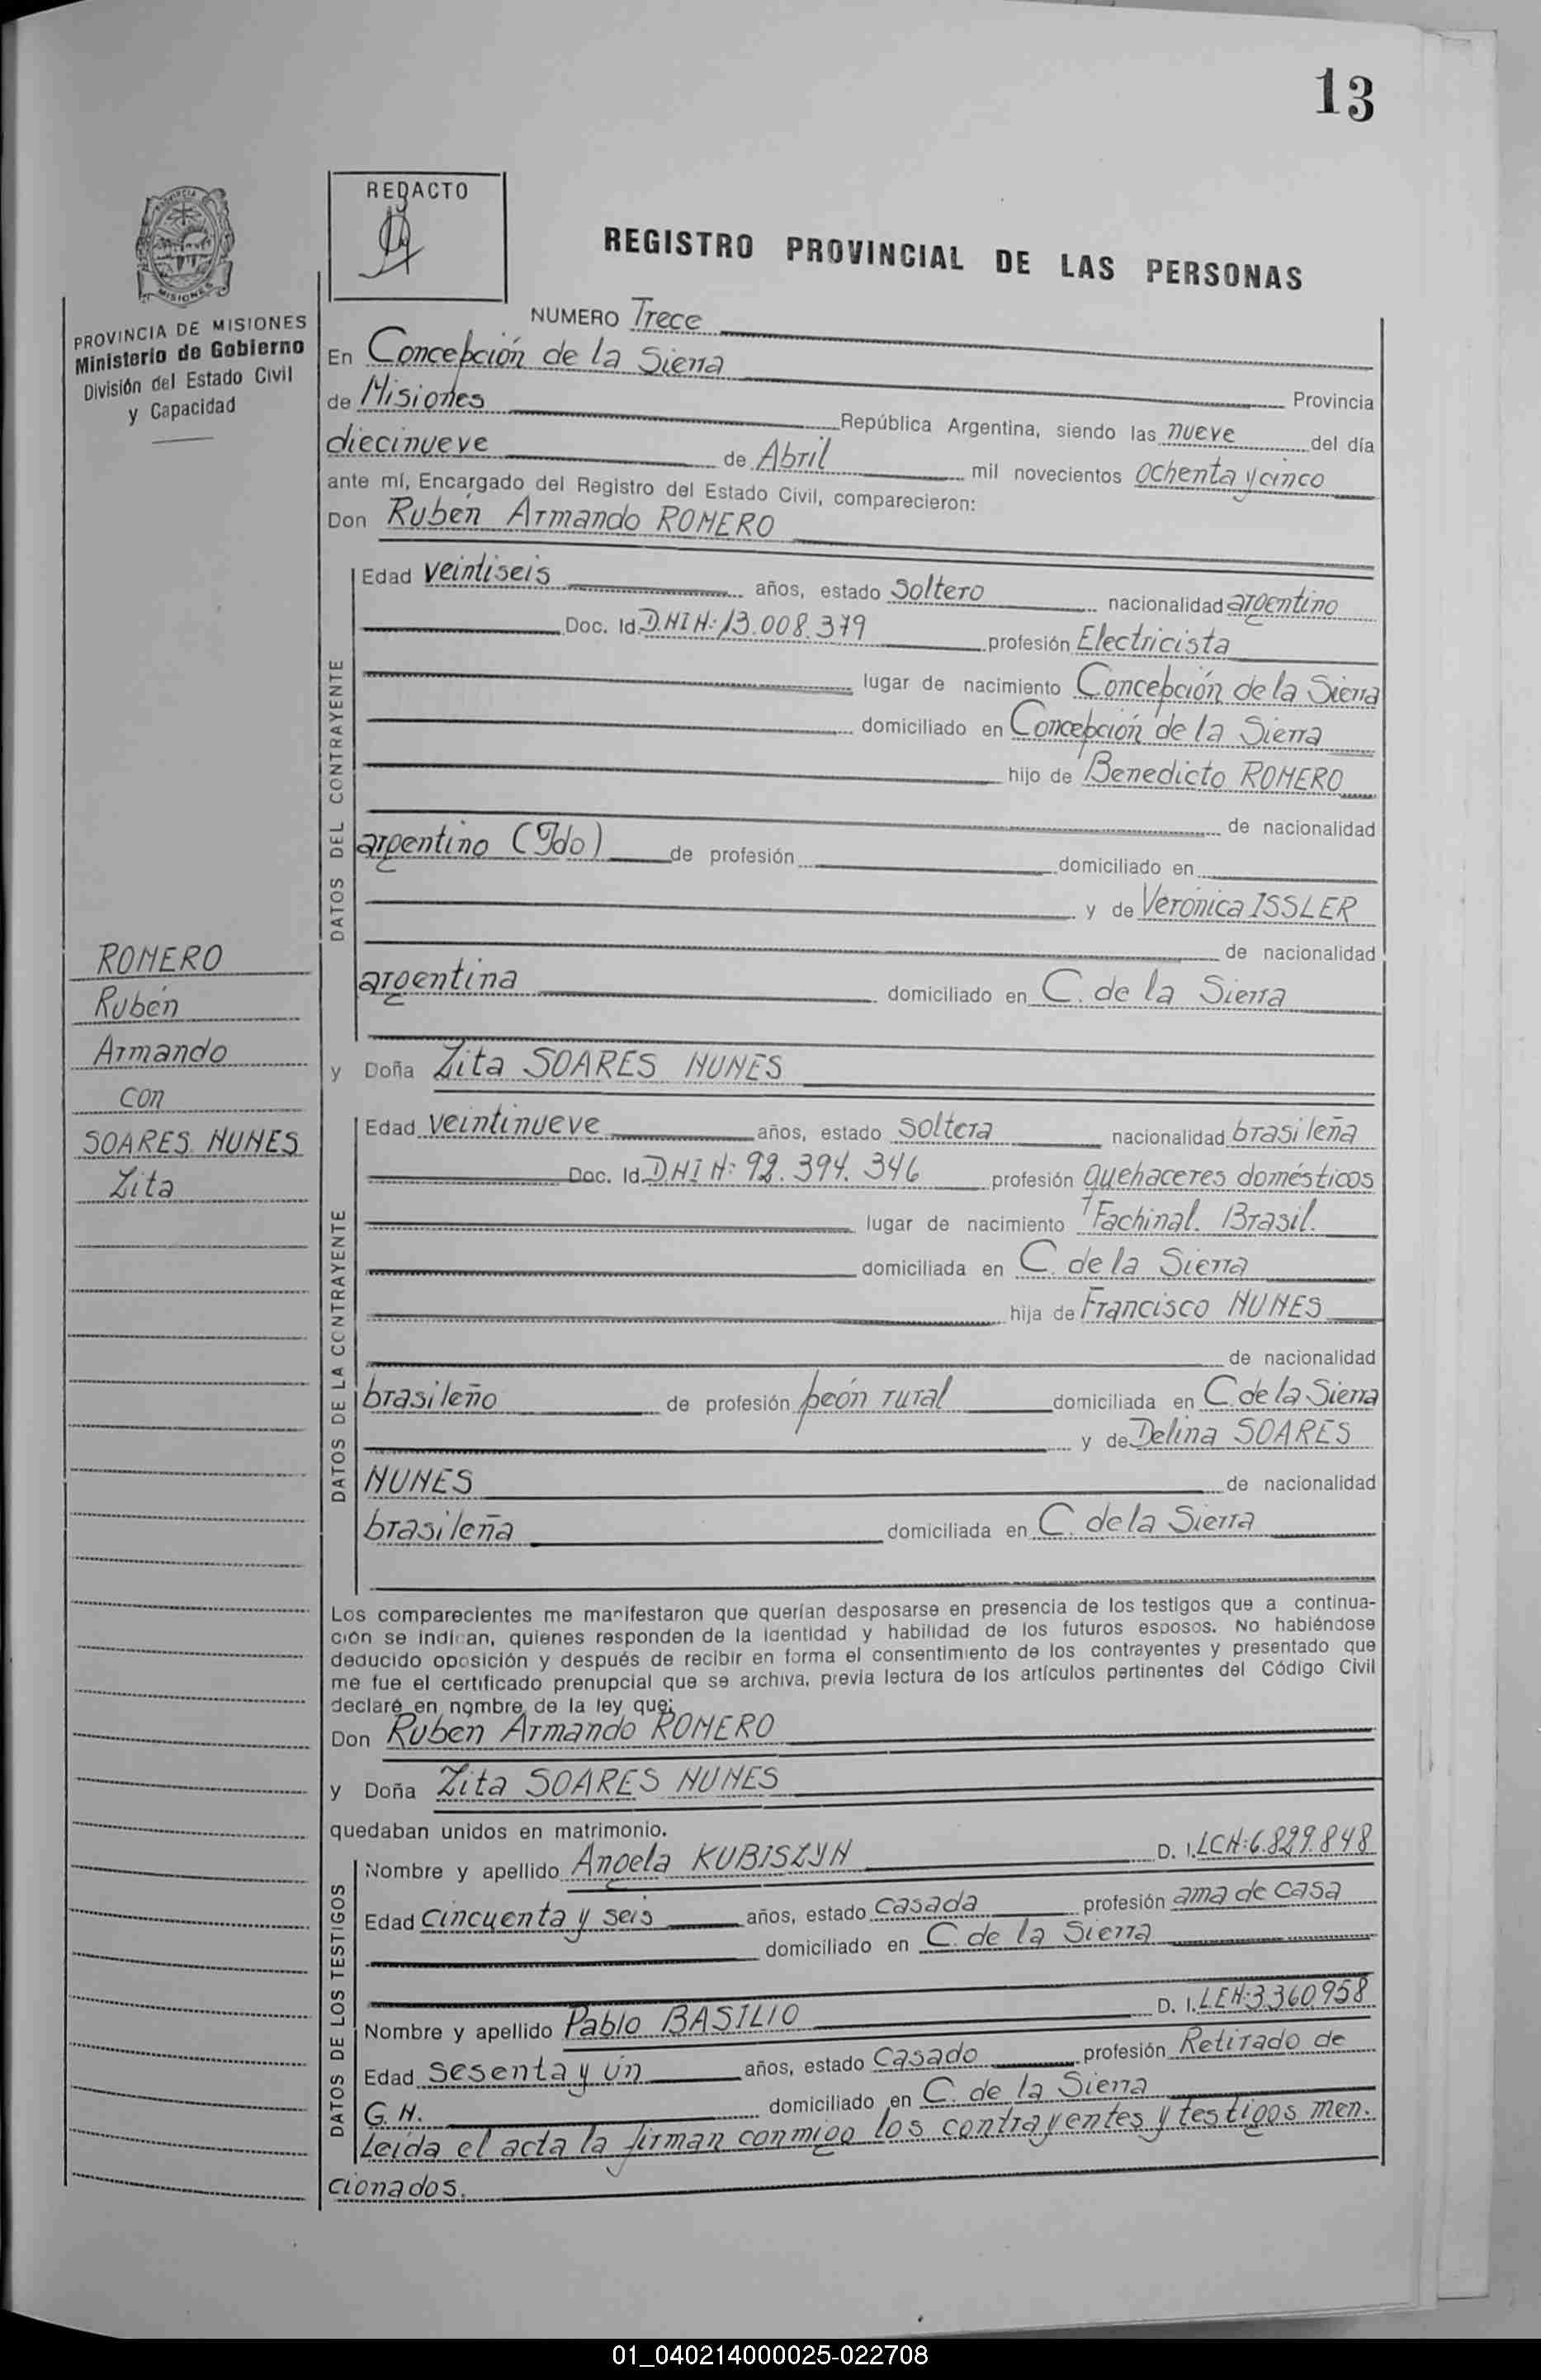 13
REDACTO
REGISTRO PROVINCIAL DE LAS PERSONAS
MISIONES
PROVINCIA DE MISIONES
Ministerio de Gobierno
División del Estado Civil
y Capacidad
NUMERO Trece
En Concepción de la Sierra
Provincia
de Misiones República Argentina, siendo las nueve del día
diecinueve de Abril mil novecientos ochenta y cinco
ante mí, Encargado del Registro del Estado Civil, comparecieron:
Don Rubén Armando ROMERO
DATOS DEL CONTRAYENTE
Edad veintiseis años, estado soltero nacionalidad argentino
Doc. Id. D.N.I N: 13.008.379 profesión Electricista
lugar de nacimiento Concepción de la Sierra
domiciliado en Concepción de la Sierra
hijo de Benedicto ROMERO
de nacionalidad
argentino (Fdo) de profesión domiciliado en
y de Verónica ISSLER
de nacionalidad
argentina domiciliado en C. de la Sierra
ROMERO
Rubén
Armando
con
SOARES NUNES
Zita
y Doña Zita SOARES NUNES
DATOS DE LA CONTRAYENTE
Edad veintinueve años, estado soltera nacionalidad brasileña
Doc. Id. DNI N: 92.394.346 profesión quehaceres domésticos
lugar de nacimiento Fachinal. Brasil.
domiciliada en C. de la Sierra
hija de Francisco NUNES
de nacionalidad
brasileño de profesión peón rural domiciliada en C. de la Sierra
y de Delina SOARES
NUNES de nacionalidad
brasileña domiciliada en C. de la Sierra
Los comparecientes me manifestaron que querían desposarse en presencia de los testigos que a continua-
ción se indican, quienes responden de la identidad y habilidad de los futuros esposos. No habiéndose
deducido oposición y después de recibir en forma el consentimiento de los contrayentes y presentado que
me fue el certificado prenupcial que se archiva, previa lectura de los artículos pertinentes del Código Civil
declaré en nombre de la ley que:
Don Ruben Armando ROMERO
y Doña Zita SOARES NUNES
quedaban unidos en matrimonio.
DATOS DE LOS TESTIGOS
Nombre y apellido Angela KUBISZYN D. I. LC N: 6.829.848
Edad cincuenta y seis años, estado casada profesión ama de casa
domiciliado en C. de la Sierra
Nombre y apellido Pablo BASILIO D. I. LE N: 3.360.958
Edad sesenta y un años, estado casado profesión Retirado de
G. N. domiciliado en C. de la Sierra
Leída el acta la firman conmigo los contrayentes y testigos men.
cionados.
01_040214000025-022708